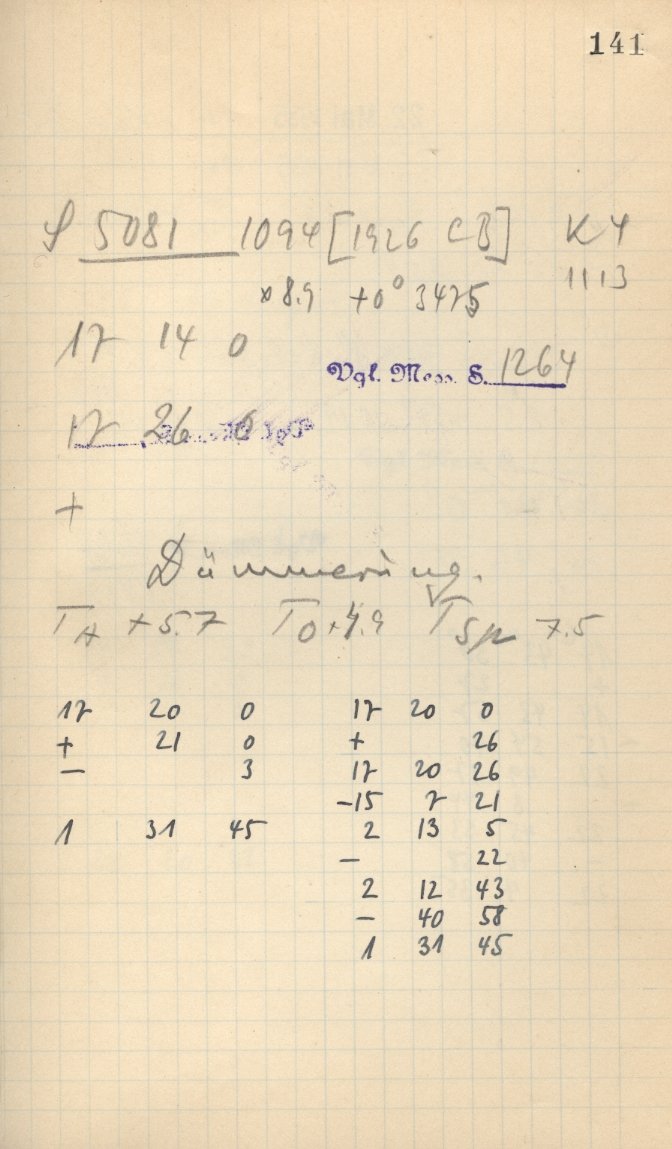 141
S 5081 1094 [1926 CB] K4
1113
8.9 +0° 3475
17 14 0
Vgl. Mess. S. 1264
17 26 0
+
Dämmerung.
TA +5.7 TO +4.9 TSp 7.5
17 20 0 17 20 0
+ 21 0 + 26
— 3 17 20 26
-15 7 21
1 31 45 2 13 5
— 22
2 12 43
— 40 58
1 31 45